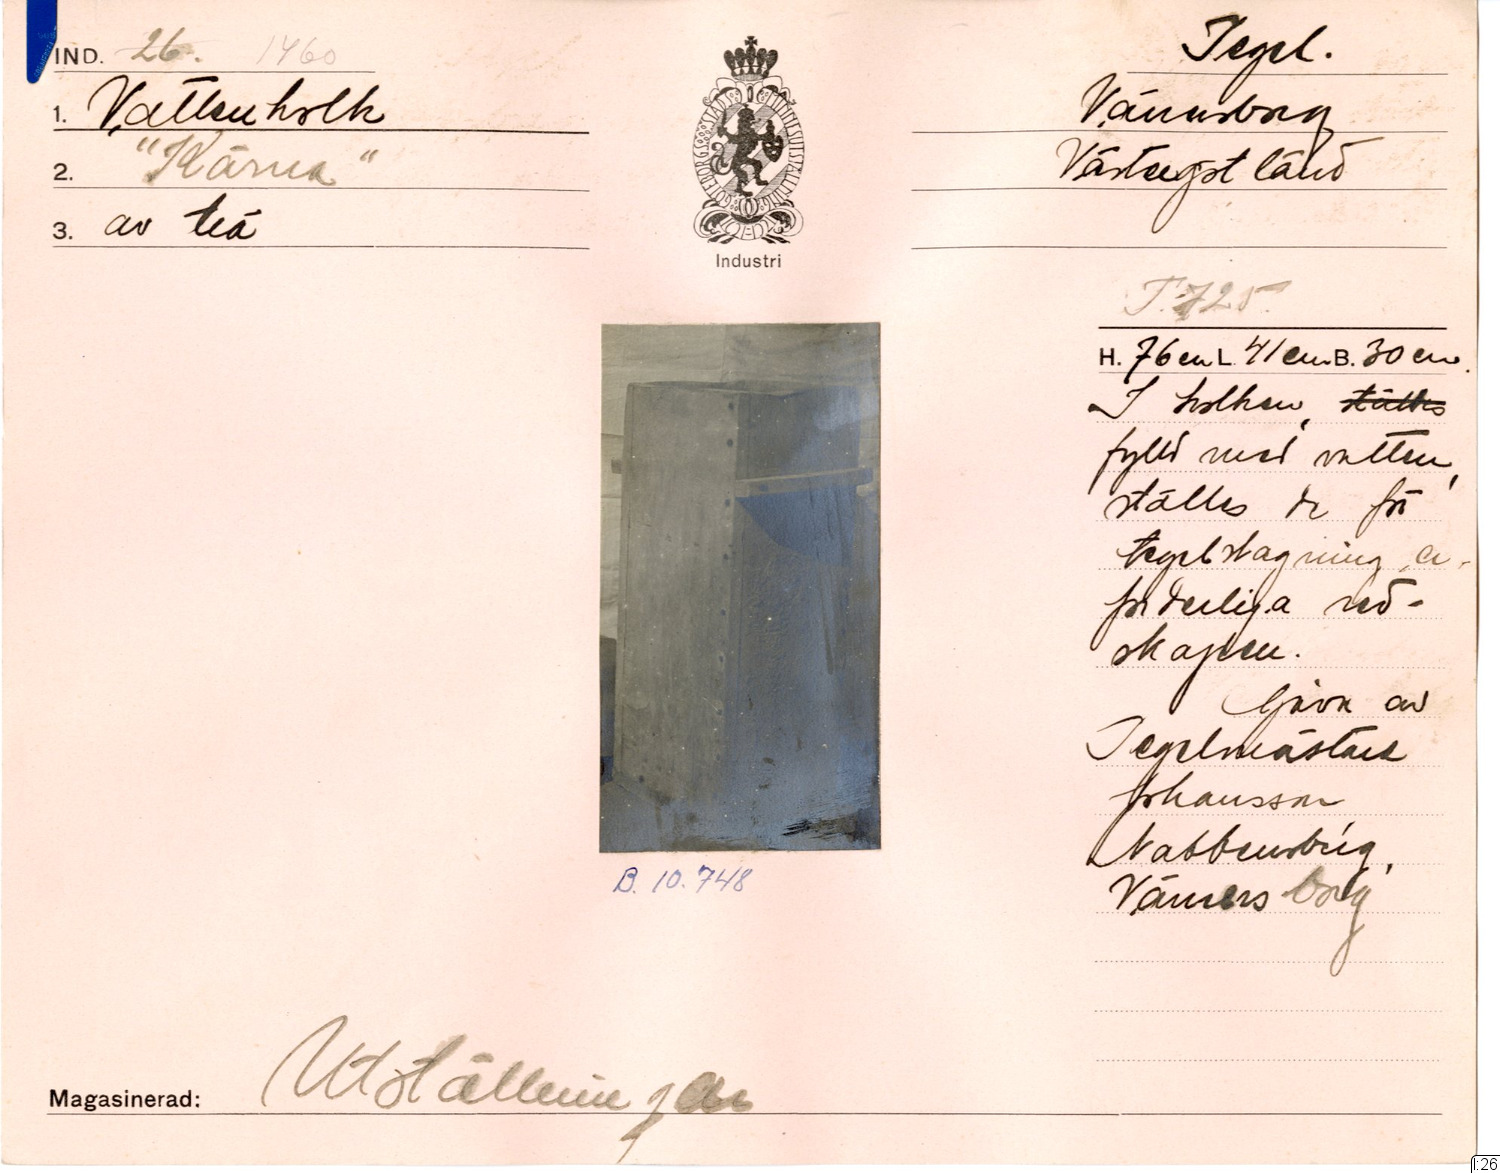 IND. 26. 1460
1. Vattenholk
2. "Kärna"
3. av trä
GÖTEBORGS STADS MINNESUTSTÄLLNING
Industri
Tegel.
Vänersborg
Västergötland
T. 725.
H. 76 cm L. 41 cm B. 30 cm.
I holken, ställes
fylld med vatten,
ställes de för
tegelslagning er-
forderliga red-
skapen.
Gåva av
Tegelmästare
Johansson
Nabbensberg,
Vänersborg
B. 10.748
Magasinerad: Utställningen
I:26